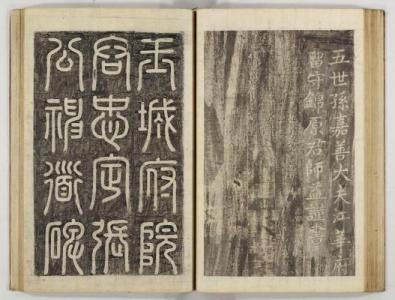 五世孫嘉善大夫江華府
留守錦原君師謹書
玉城府院
君忠定張
公神道碑